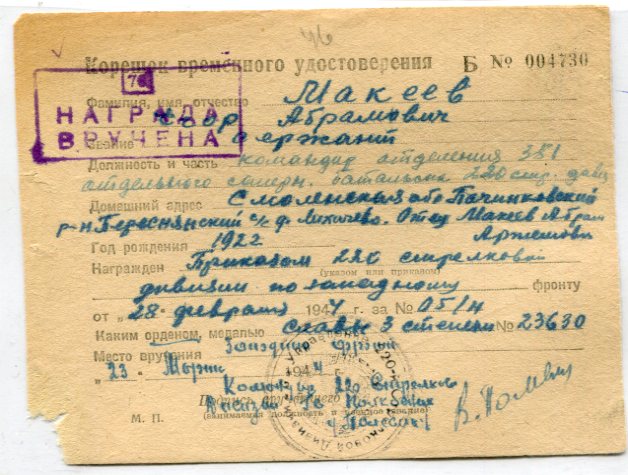 Корешок временного удостоверения Б № 004730
76
НАГРАДА
ВРУЧЕНА
Фамилия, имя, отчество Макеев
Абрамович
Звание сержант
Должность и часть командир отделения 381
отдельного саперн. батальона 220 стр. див
Домашний адрес Смоленская обл Починковский
р-н Переснянский с/с д. Лихачево. Отец Макеев Абрам
Год рождения 1922
Награжден Приказом 220 стрелковой
(указом или приказом)
дивизии по западному фронту
от „28 февраля 1944 г. за № 05/н
Каким орденом, медалью Славы 3 степени № 23630
Место вручения Западный фронт
„23 Марта 1944
Командир 220 стрелков
Подпись вручившего
дивизии Полковник
(занимаемая должность и военное звание)
М. П.